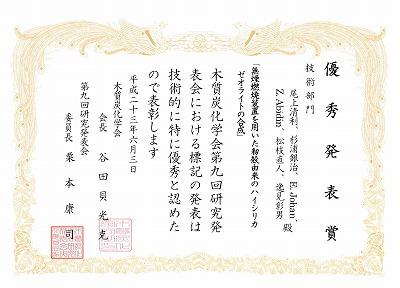 優秀発表賞
技術部門
尾上清利、杉浦銀治、E. Johan、
Z. Abidin、松枝直人、逸見彰男 殿
「無煙燃焼装置を用いた籾殻由来のハイシリカ
ゼオライトの合成」
木質炭化学会第九回研究発
表会における標記の発表は
技術的に特に優秀と認めた
ので表彰します
平成二十三年六月三日
木質炭化学会
会長 谷田貝光克
第九回研究発表会
委員長 栗本康司